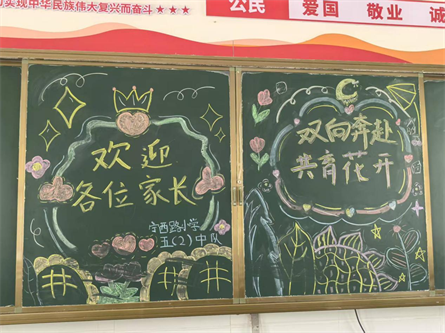 实现中华民族伟大复兴而奋斗★★★
公民
爱国 敬业 诚
欢迎
各位家长
宁西路小学
五(2)中队
双向奔赴
共育花开